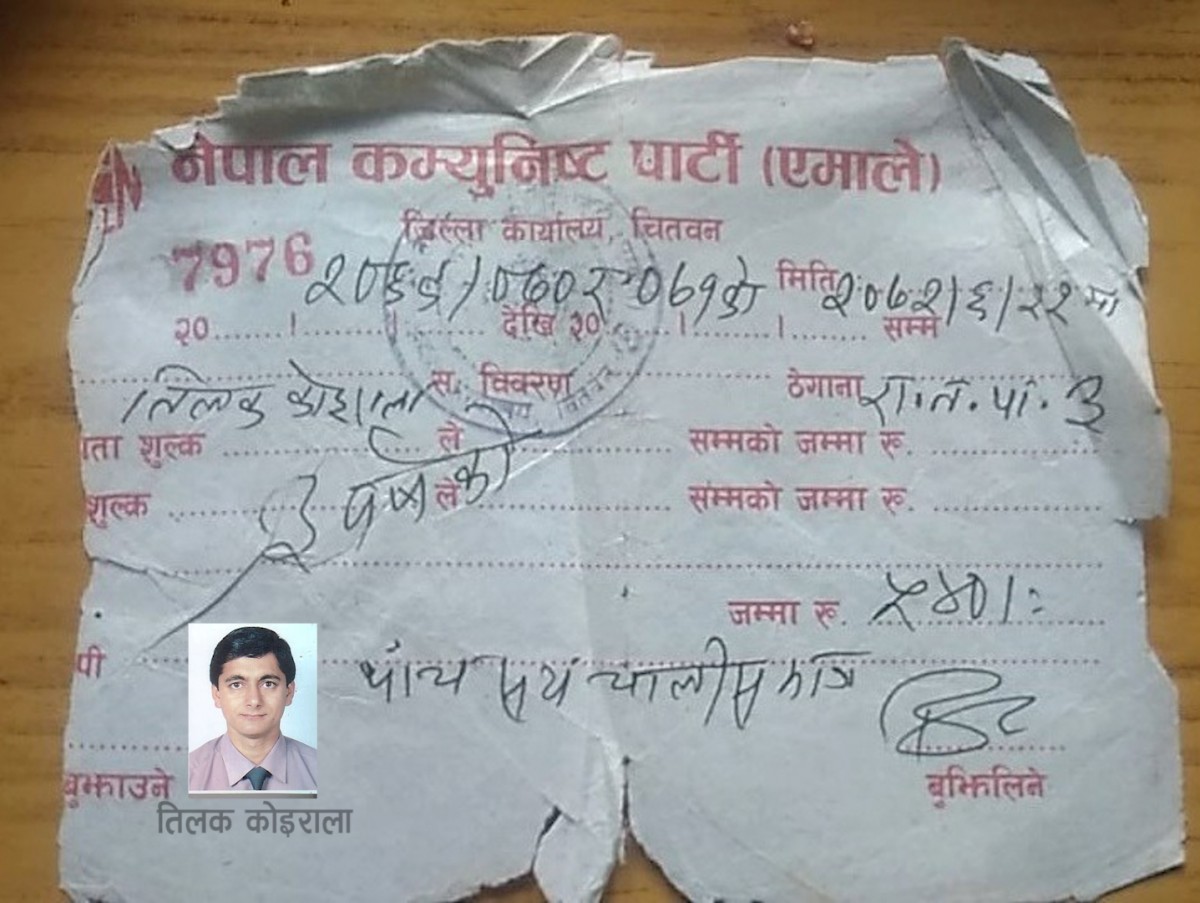 नेपाल कम्युनिष्ट पार्टी (एमाले)
जिल्ला कार्यालय, चितवन
7976
मिति २०६२।६।२२ मा
२०......।........।........ देखि २०......।........।........ सम्म
तिलक कोइराला स. विवरण ठेगाना रा.न.पा. ३
ता शुल्क ........ ले ........ सम्मको जम्मा रू. ........
३ वर्षको
शुल्क ........ ले ........ सम्मको जम्मा रू. ........
जम्मा रू. ५४०।-
पी पांच सय चालीस मात्र
बुझाउने बुझिलिने
तिलक कोइराला